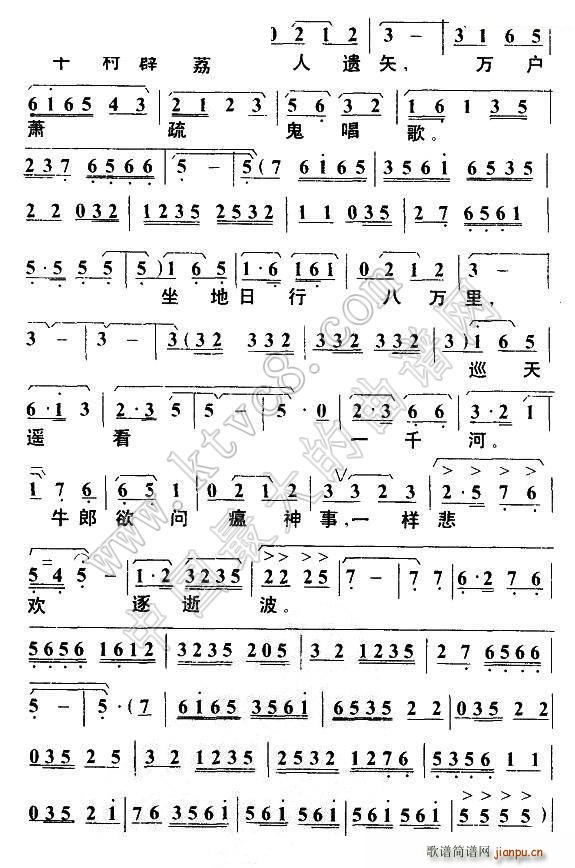 0 2 1 2 | 3 - | 3 1 6 5
千 村 薜 荔 人 遗 矢, 万 户
6 1 6 5 4 3 | 2 1 2 3 | 5 6 3 2 | 1 6 1 3 5
萧 疏 鬼 唱 歌。
2 3 7 6 5 6 6 | 5 - | 5 ( 7 6 1 6 5 | 3 5 6 1 6 5 3 5
2 2 0 3 2 | 1 2 3 5 2 5 3 2 | 1 1 0 3 5 | 2 7 6 5 6 1
5 · 5 5 5 | 5 ) 1 6 5 | 1 · 6 1 6 1 | 0 2 1 2 | 3 -
坐 地 日 行 八 万 里,
3 - | 3 - | 3 ( 3 2 2 | 3 3 2 3 3 2 | 3 3 2 3 3 2 | 3 ) 1 6 5
巡 天
6 · i 3 | 2 · 3 5 | 5 - | 5 · 0 | 2 · 3 6 6 | 3 · 2 1
遥 看 一 千 河。
1 7 6 | 6 5 1 | 0 2 1 2 | 3 3 2 3 | 2 · 5 7 6
牛 郎 欲 问 瘟 神 事, 一 样 悲
5 4 5 - | 1 · 2 3 2 3 5 | 2 2 2 5 | 7 - | 7 - | 6 · 2 7 6
欢 逐 逝 波。
5 6 5 6 1 6 1 2 | 3 2 3 5 2 0 5 | 3 2 1 2 3 5 | 2 0 3 2 7 6
5 - | 5 · ( 7 | 6 i 6 5 3 5 6 i | 6 5 3 5 2 2 | 0 3 5 2 2
0 3 5 2 5 | 3 2 1 2 3 5 | 2 5 3 2 1 2 7 6 | 5 3 5 6 1 1
0 3 5 2 i | 7 6 3 5 6 i | 5 6 i 5 6 i | 5 6 i 5 6 i | 5 5 5 5 )
www.ktvc8.com
中国最大的曲谱网
歌谱简谱网
jianpu.cn